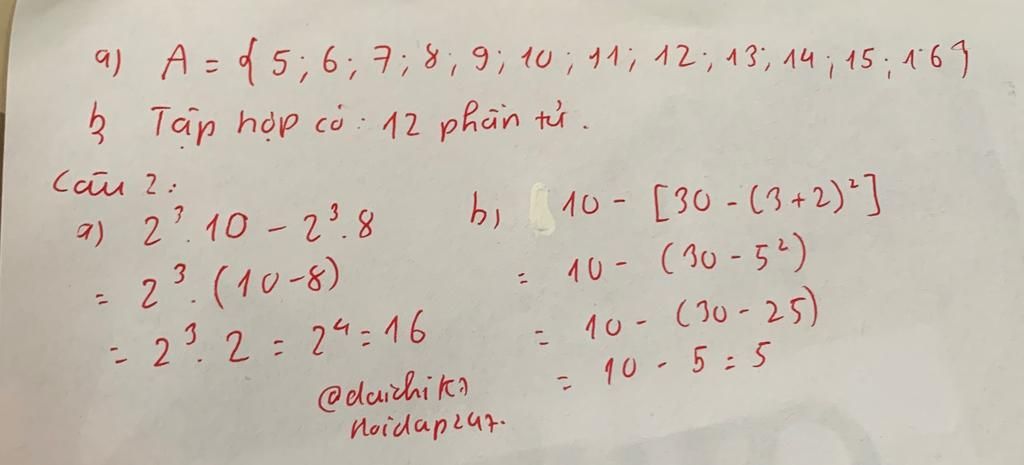 a) A = { 5 ; 6 ; 7 ; 8 ; 9 ; 10 ; 11 ; 12 ; 13 ; 14 ; 15 ; 16 }
b, Tập hợp có : 12 phần tử.
Câu 2 :
a) 2³ . 10 - 2³ . 8
= 2³ . (10 - 8)
= 2³ . 2 = 2⁴ = 16
b, 10 - [30 - (3+2)²]
= 10 - (30 - 5²)
= 10 - (30 - 25)
= 10 - 5 = 5
@daichik
hoidap247.